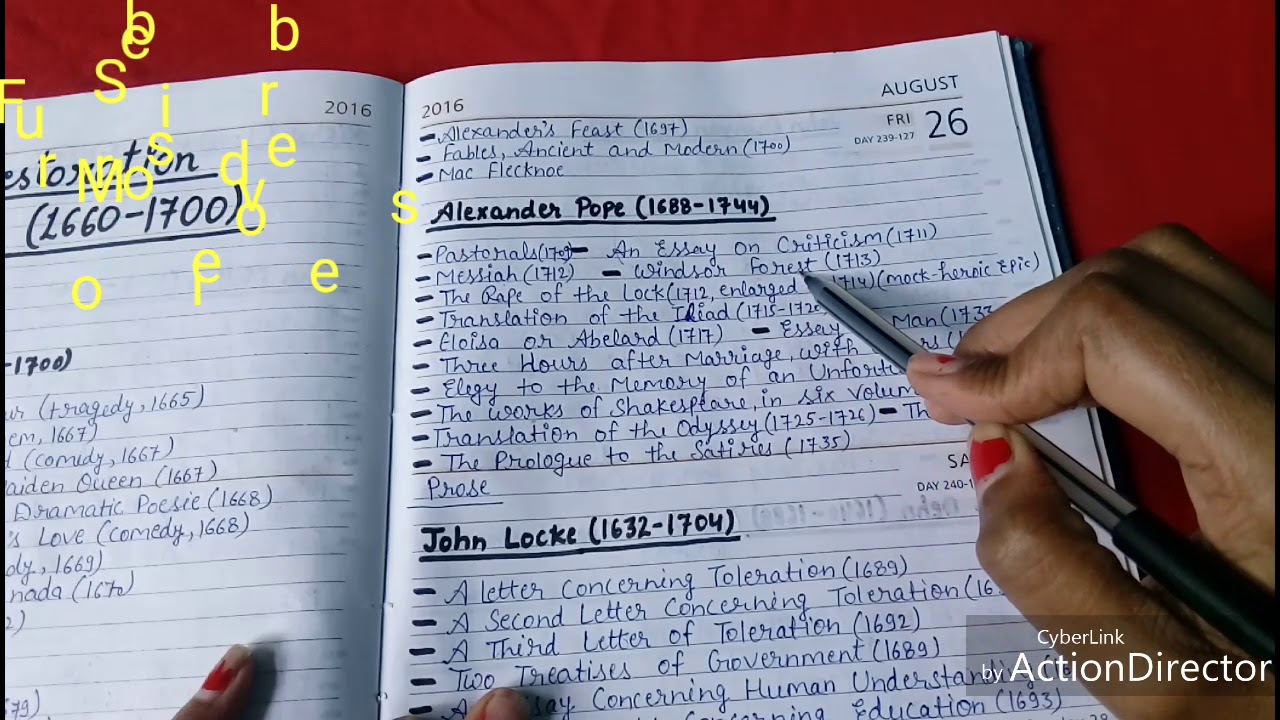 2016
estoration
(1660-1700)
-1700)
ur (tragedy, 1665)
em, 1667)
d (comedy, 1667)
aiden Queen (1667)
Dramatic Poesie (1668)
's Love (comedy, 1668)
ody, 1669)
nada (1670)
2)
79)
2016
AUGUST
FRI
26
DAY 239-127
- Alexander's Feast (1697)
- Fables, Ancient and Modern (1700)
- Mac Flecknoe
Alexander Pope (1688-1744)
- Pastorals(1709 - An Essay on Criticism (1711)
- Messiah (1712) - Windsor Forest (1713)
- The Rape of the Lock (1712, enlarged 1714) (mock-heroic Epic)
- Translation of the Iliad (1715-1720
- Eloisa or Abelard (1717) - Essay Man (1733
- Three Hours after Marriage, with
- Elegy to the Memory of an Unfortu
- The works of Shakespeare, in six Volum
- Translation of the Odyssey (1725-1726) - Th
- The Prologue to the Satiries (1735)
SA
DAY 240-1
Prose
John Locke (1632-1704)
- A letter Concerning Toleration (1689)
- A Second Letter Concerning Toleration (16
- A Third Letter of Toleration (1692)
- Two Treatises of Government (1689)
- A say Concerning Human Understanding
Concerning Education (1693)
CyberLink
by ActionDirector